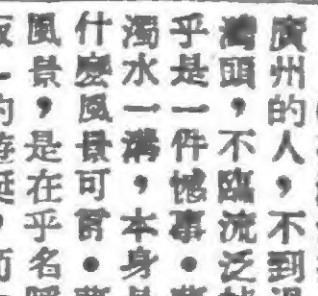 廣州的人，不到
灣頭，不臨流泛
乎是一件憾事。
濁水一灣，本身
什麼風景可言。
風景，是在乎名